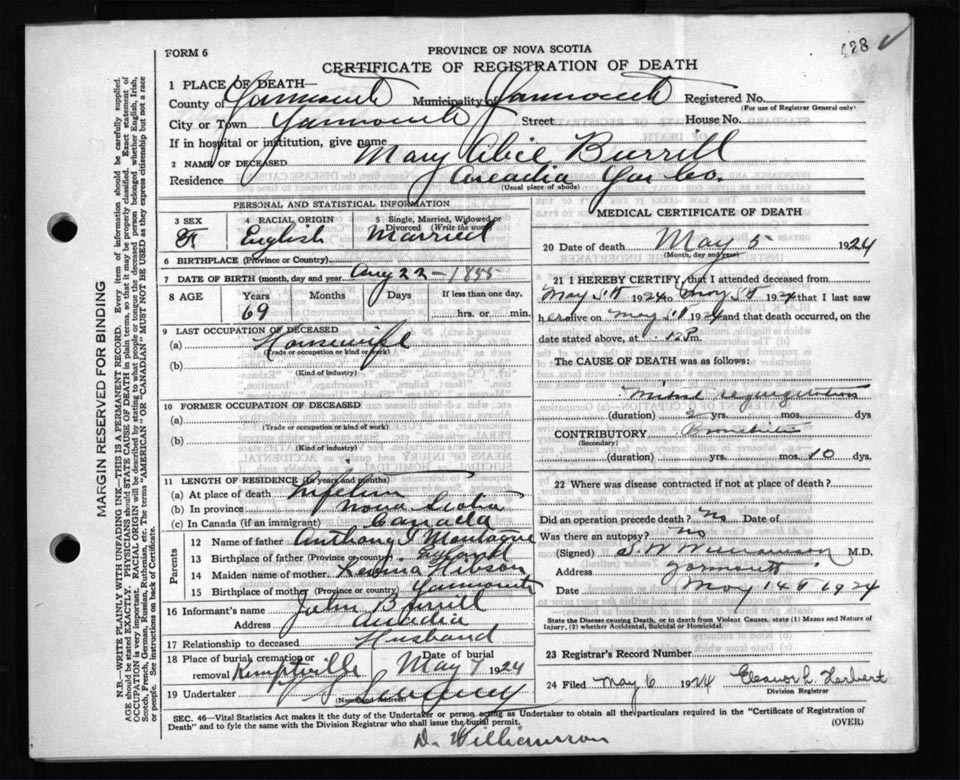 628
FORM 6
PROVINCE OF NOVA SCOTIA
CERTIFICATE OF REGISTRATION OF DEATH
1 PLACE OF DEATH—
County of Yarmouth Municipality of Yarmouth Registered No.
(For use of Registrar General only)
City or Town Yarmouth Street House No.
If in hospital or institution, give name
2 NAME OF DECEASED Mary Burrill
Residence Arcadia Yar Co.
(Usual place of abode)
PERSONAL AND STATISTICAL INFORMATION
3 SEX F
4 RACIAL ORIGIN English
5 Single, Married, Widowed or Divorced (Write the word) Married
6 BIRTHPLACE (Province or Country)
7 DATE OF BIRTH (month, day and year) Aug 22 – 1855
8 AGE Years Months Days If less than one day,
69 hrs. or min.
9 LAST OCCUPATION OF DECEASED
(a) Housewife
(Trade or occupation or kind of work)
(b)
(Kind of industry)
10 FORMER OCCUPATION OF DECEASED
(a)
(Trade or occupation or kind of work)
(b)
(Kind of industry)
11 LENGTH OF RESIDENCE (In years and months)
(a) At place of death Lifetime
(b) In province Nova Scotia
(c) In Canada (if an immigrant) Canada
Parents
12 Name of father Anthony Montague
13 Birthplace of father (Province or country)
14 Maiden name of mother
15 Birthplace of mother (Province or country) Yarmouth
16 Informant's name John Burrill
Address Arcadia
17 Relationship to deceased Husband
18 Place of burial, cremation or removal Kemptville Date of burial May 7 1924
19 Undertaker Sweeny
(Name and Address)
MEDICAL CERTIFICATE OF DEATH
20 Date of death May 5 1924
(Month, day and year)
21 I HEREBY CERTIFY, that I attended deceased from
May 5th 1924 to May 5th 1924 that I last saw
her alive on May 5th 1924 and that death occurred, on
date stated above, at 12 P m.
The CAUSE OF DEATH was as follows:
Mitral regurgitation
(duration) 2 yrs. mos. dys
CONTRIBUTORY Bronchitis
(Secondary)
(duration) yrs. mos. 10 dys.
22 Where was disease contracted if not at place of death?
Did an operation precede death? No Date of
Was there an autopsy? No
(Signed) S. W. Williamson M.D.
Address Yarmouth
Date May 14th 1924
State the Disease causing Death, or in death from Violent Causes, state (1) Means and Nature of
Injury, (2) whether Accidental, Suicidal or Homicidal.
23 Registrar's Record Number
24 Filed May 6 1924 Eleanor L. Herbert
Division Registrar
SEC. 46—Vital Statistics Act makes it the duty of the Undertaker or person acting as Undertaker to obtain all the particulars required in the "Certificate of Registration of
Death" and to file the same with the Division Registrar who shall issue the burial permit.
(OVER)
D. Williamson
MARGIN RESERVED FOR BINDING
N.B.—WRITE PLAINLY WITH UNFADING INK—THIS IS A PERMANENT RECORD. Every item of information should be carefully supplied.
AGE should be stated EXACTLY. PHYSICIANS should STATE CAUSE OF DEATH in plain terms, so that it may be properly classified. Exact statement of
OCCUPATION is very important. RACIAL ORIGIN will be described by stating to what people or tongue the deceased person belonged whether English, Irish,
Scotch, French, German, Russian, Ruthenian, etc. The terms "AMERICAN" OR "CANADIAN" MUST NOT BE USED as they express citizenship but not a race
or people. See instructions on back of Certificate.